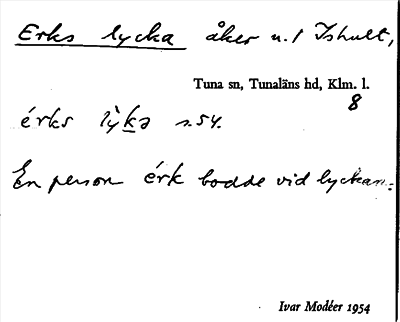 Erks lycka åker n. 1 Ishult,
Tuna sn, Tunaläns hd, Klm. l.
8
érks lỳkə s. 54.
En person érk bodde vid lyckan.
Ivar Modéer 1954